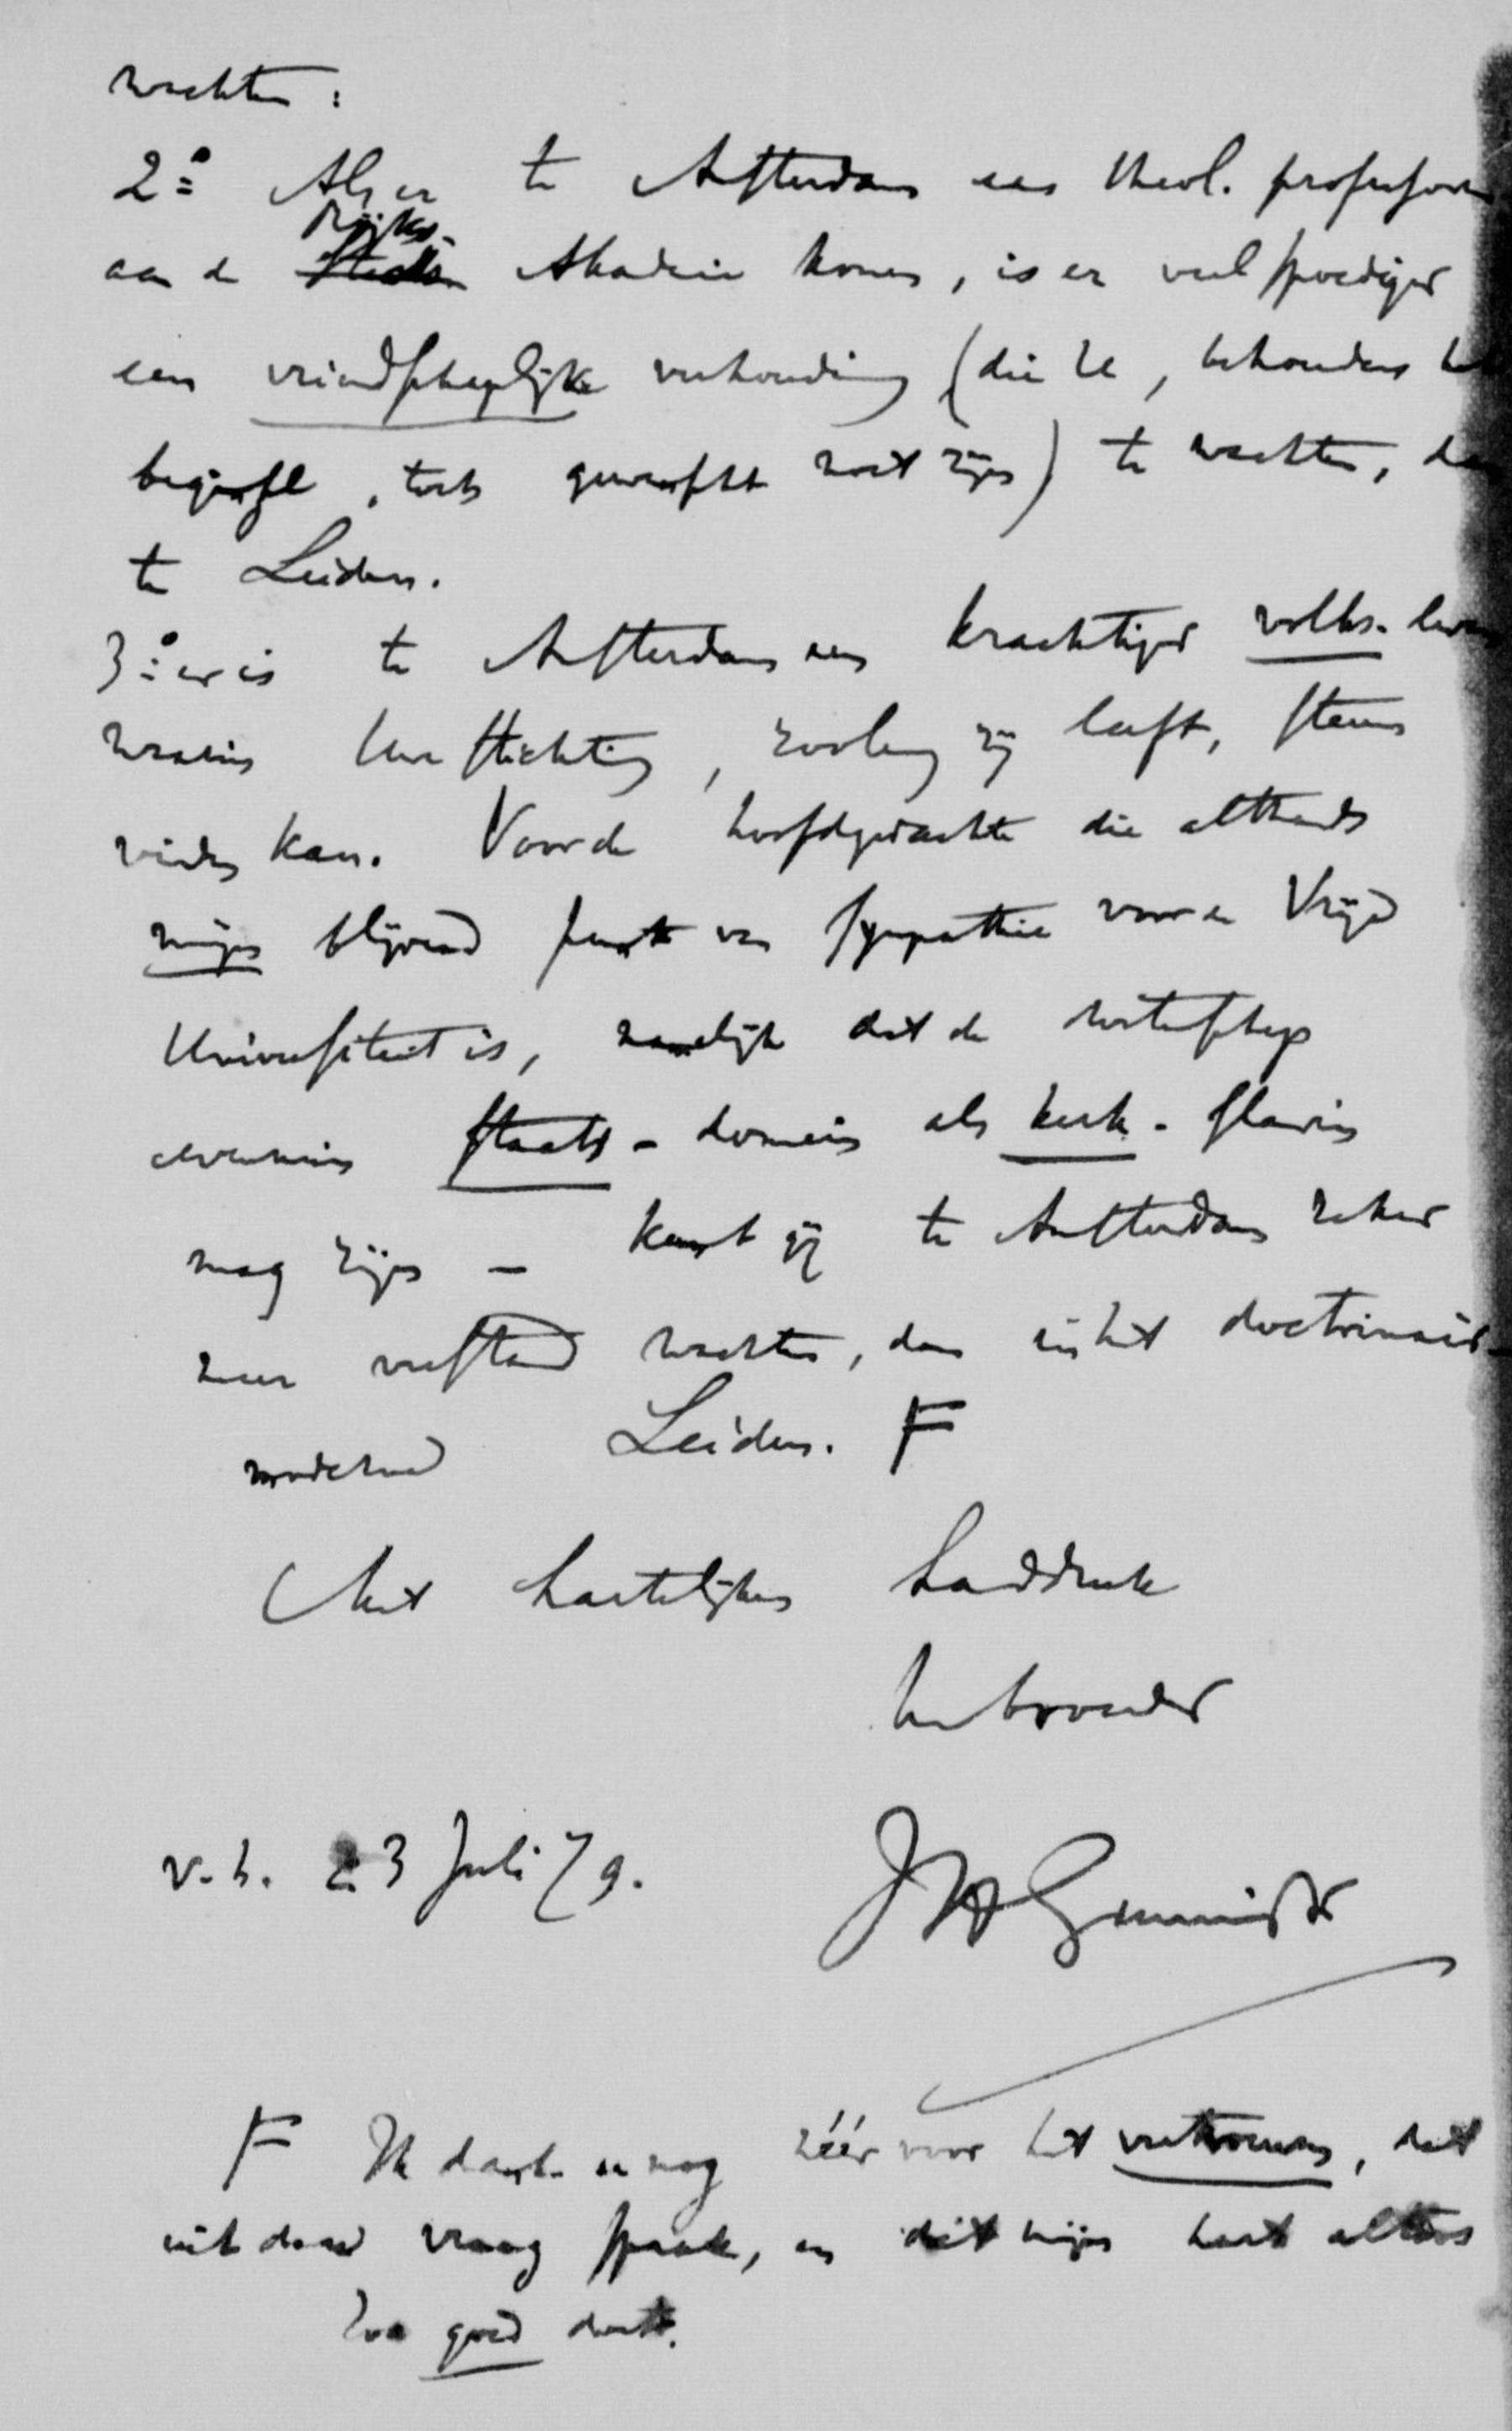 wachten:
2.o Als er te Amsterdam een theol. professoren
aan de Rijks- Akademie komen, is er veel spoediger
een vriendschaplijke verhouding (die U, behoudens het
beginsel, toch gewenscht moet zijn) te wachten, dan
te Leiden.
3.o er is te Amsterdam een krachtiger volks-leven
waarin Uw stichting, zoolang zij leeft, steun
vinden kan. Voor de hoofdgedachte die althands
mijn blijvend punt van sympathie voor de Vrije
Universiteit is, namelijk dat de wetenschap
evenmin staats-domein als kerk-slavin
mag zijn — kunt gij te Amsterdam zeker
meer verstand wachten, dan in het doctrinair-
moderne Leiden. F
Met hartelijken handdruk
Uw broeder
v. h. 23 Juli 79.
JH Gunning Jr
F Ik dank u nog zéér voor het vertrouwen, dat
uit deze vraag spreekt, en dat mijn hart altoos
zoo goed doet.